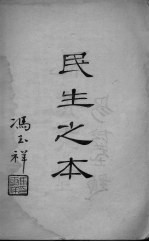 民生之本
馮玉祥